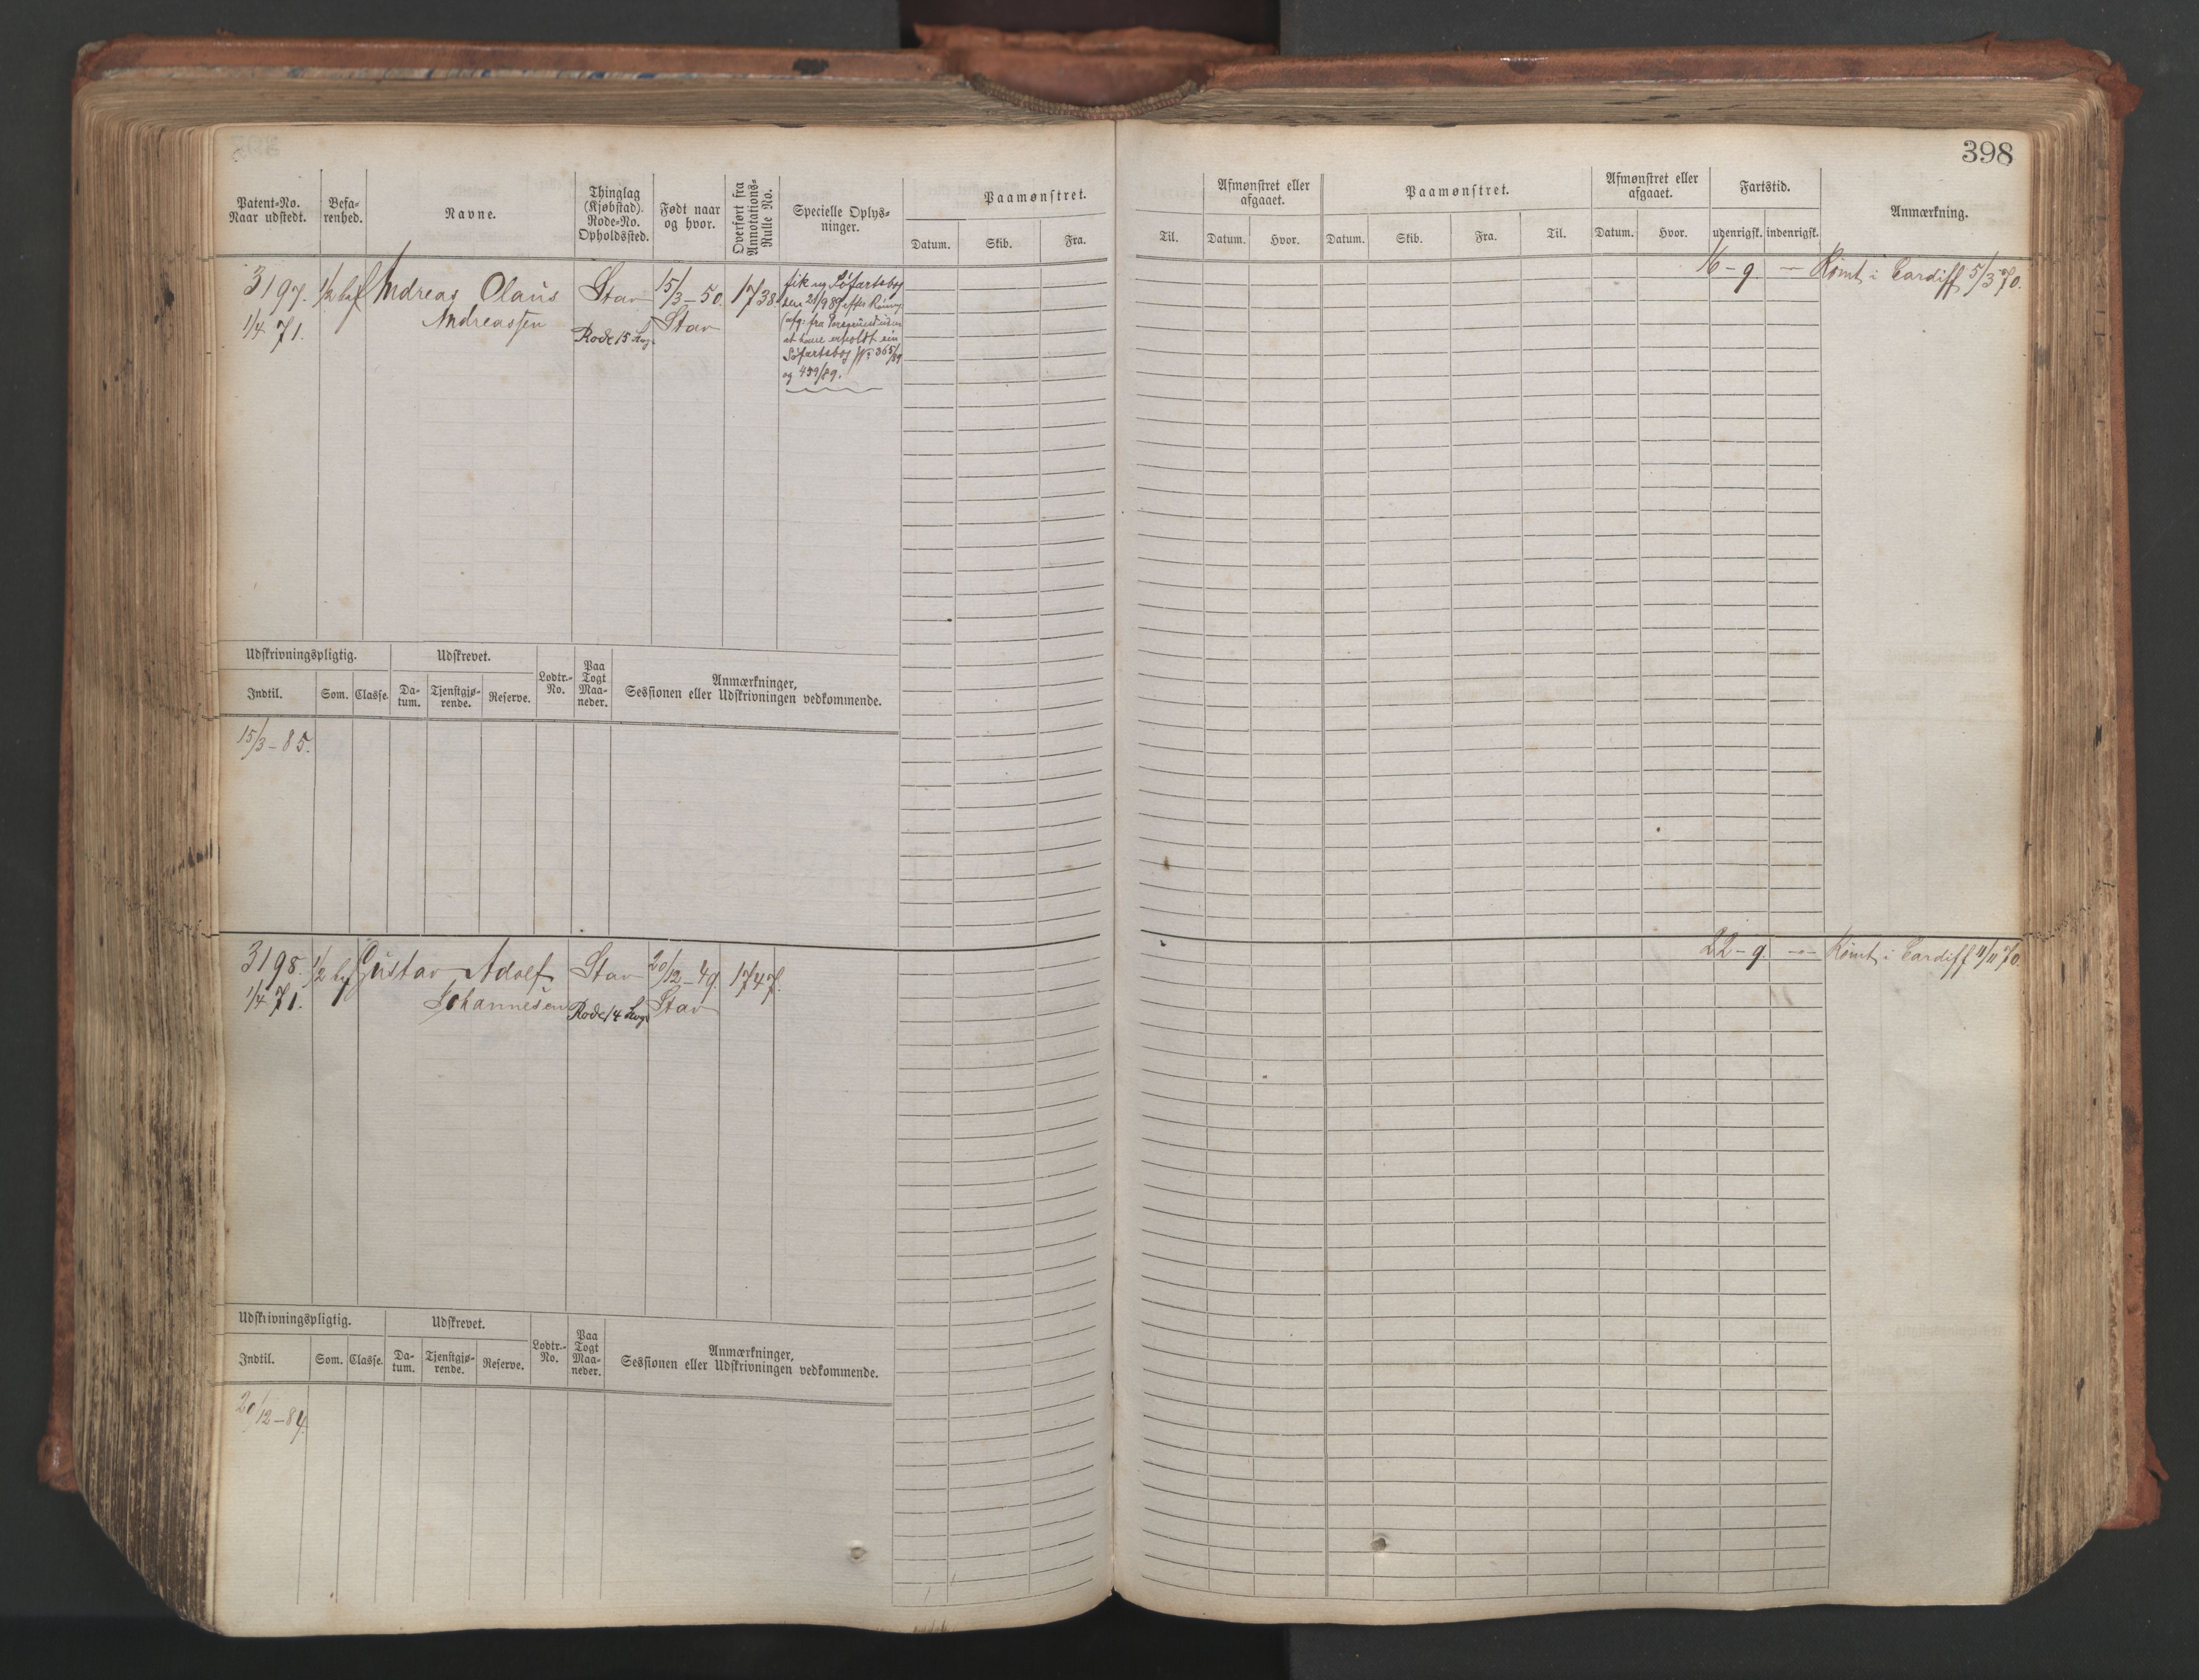 398
Patent-No.
Naar udstedt.
Befa-
renhed.
Navne.
Thinglag
(Kjøbstad).
Rode-No.
Opholdssted.
Født naar
og hvor.
Overført fra
Annotations-
Rulle No.
Specielle Oplys-
ninger.
Paamønstret.
Datum.
Skib.
Fra.
Til.
Afmønstret eller
afgaaet.
Datum.
Hvor.
Paamønstret.
Datum.
Skib.
Fra.
Til.
Afmønstret eller
afgaaet.
Datum.
Hvor.
Fartstid.
udenrigsk.
indenrigsk.
Anmærkning.
3197.
1/4 71.
1/2 bef
Andreas Olaus
Andreassen
Stav
Rode 15
15/3-50.
Stav
1738
fik ny Søfartsbog
den 21/9 89 efter
fra
at have erholdt en
Søfartsbog No 365/89
og 439/89.
16-9. —
Rømt i Cardiff 5/3 70.
Udskrivningspligtig.
Indtil.
Som.
Classe.
Udskrevet.
Da-
tum.
Tjenstgjø-
rende.
Reserve.
Lodtr.-
No.
Paa
Togt
Maa-
neder.
Anmærkninger,
Sessionen eller Udskrivningen vedkommende.
15/3-85.
3198.
1/4 71.
1/2 bef
Gustav Adolf
Johannesen
Stav
Rode 14
20/12-49.
Stav
1747.
22-9. —
Rømt i Cardiff 11/11 70.
Udskrivningspligtig.
Indtil.
Som.
Classe.
Udskrevet.
Da-
tum.
Tjenstgjø-
rende.
Reserve.
Lodtr.-
No.
Paa
Togt
Maa-
neder.
Anmærkninger,
Sessionen eller Udskrivningen vedkommende.
20/12-84.